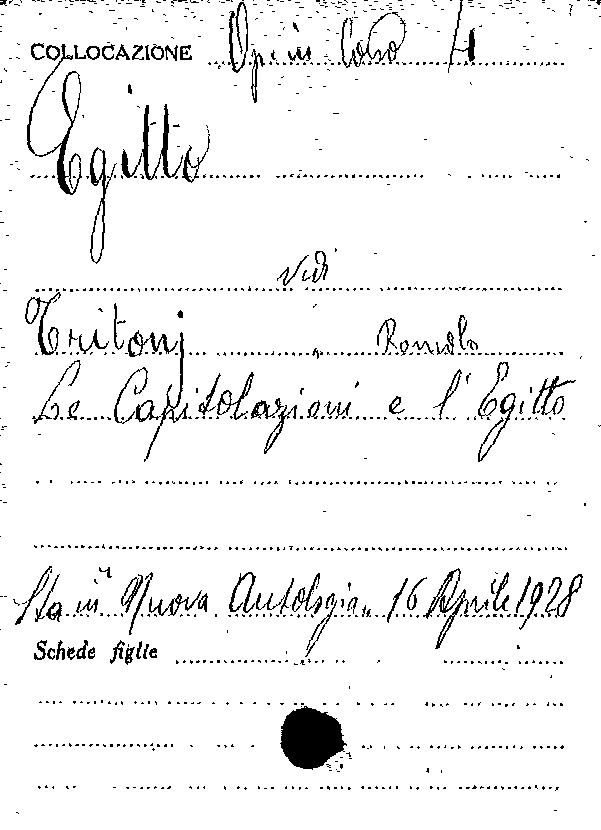 COLLOCAZIONE Op. in corso 4
Egitto
vidi
Tritonj, Romolo
Le Capitolazioni e l'Egitto
Sta in "Nuova Antologia" 16 Aprile 1928
Schede figlie